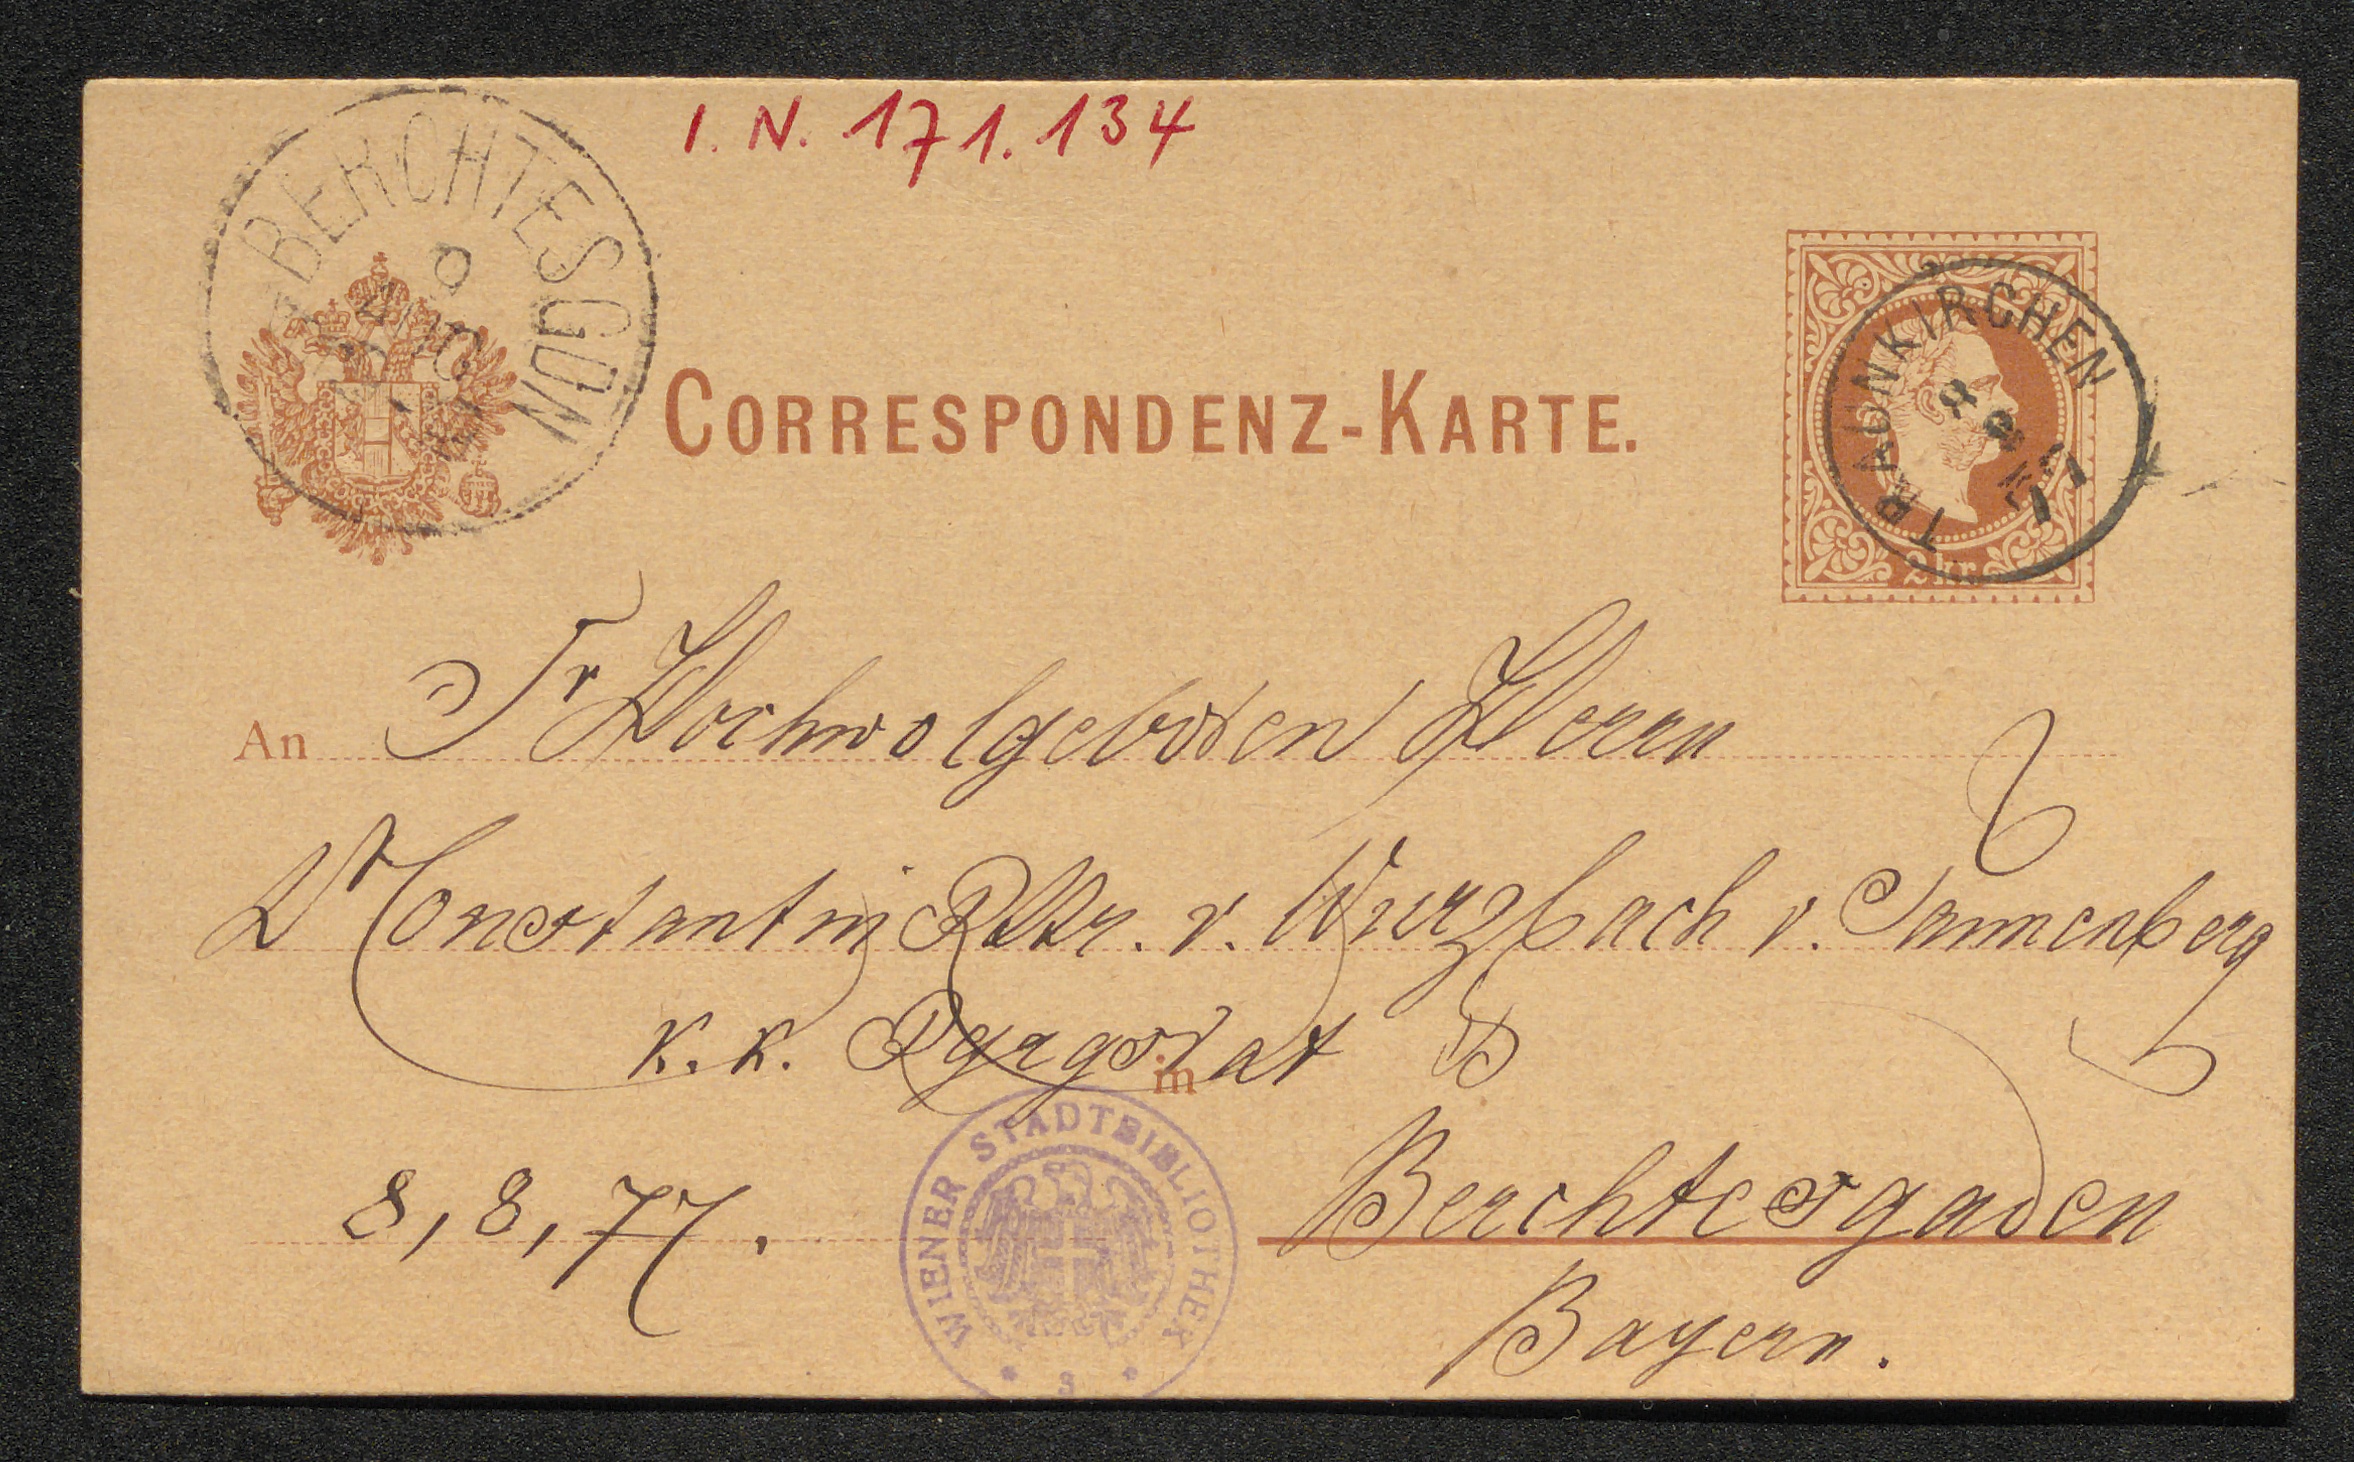 I. N. 171.134
BERCHTESGDN
9
AUG
CORRESPONDENZ-KARTE.
TRAUNKIRCHEN
8
8
77
2 kr.
An Sr Hochwolgeboren Herrn
Dr Constantin Rttr. v. Wurzbach v. Tannenberg
k. k. Rgrgsrat
in
8, 8, 77.
Berchtesgaden
Bayern.
WIENER STADTBIBLIOTHEK